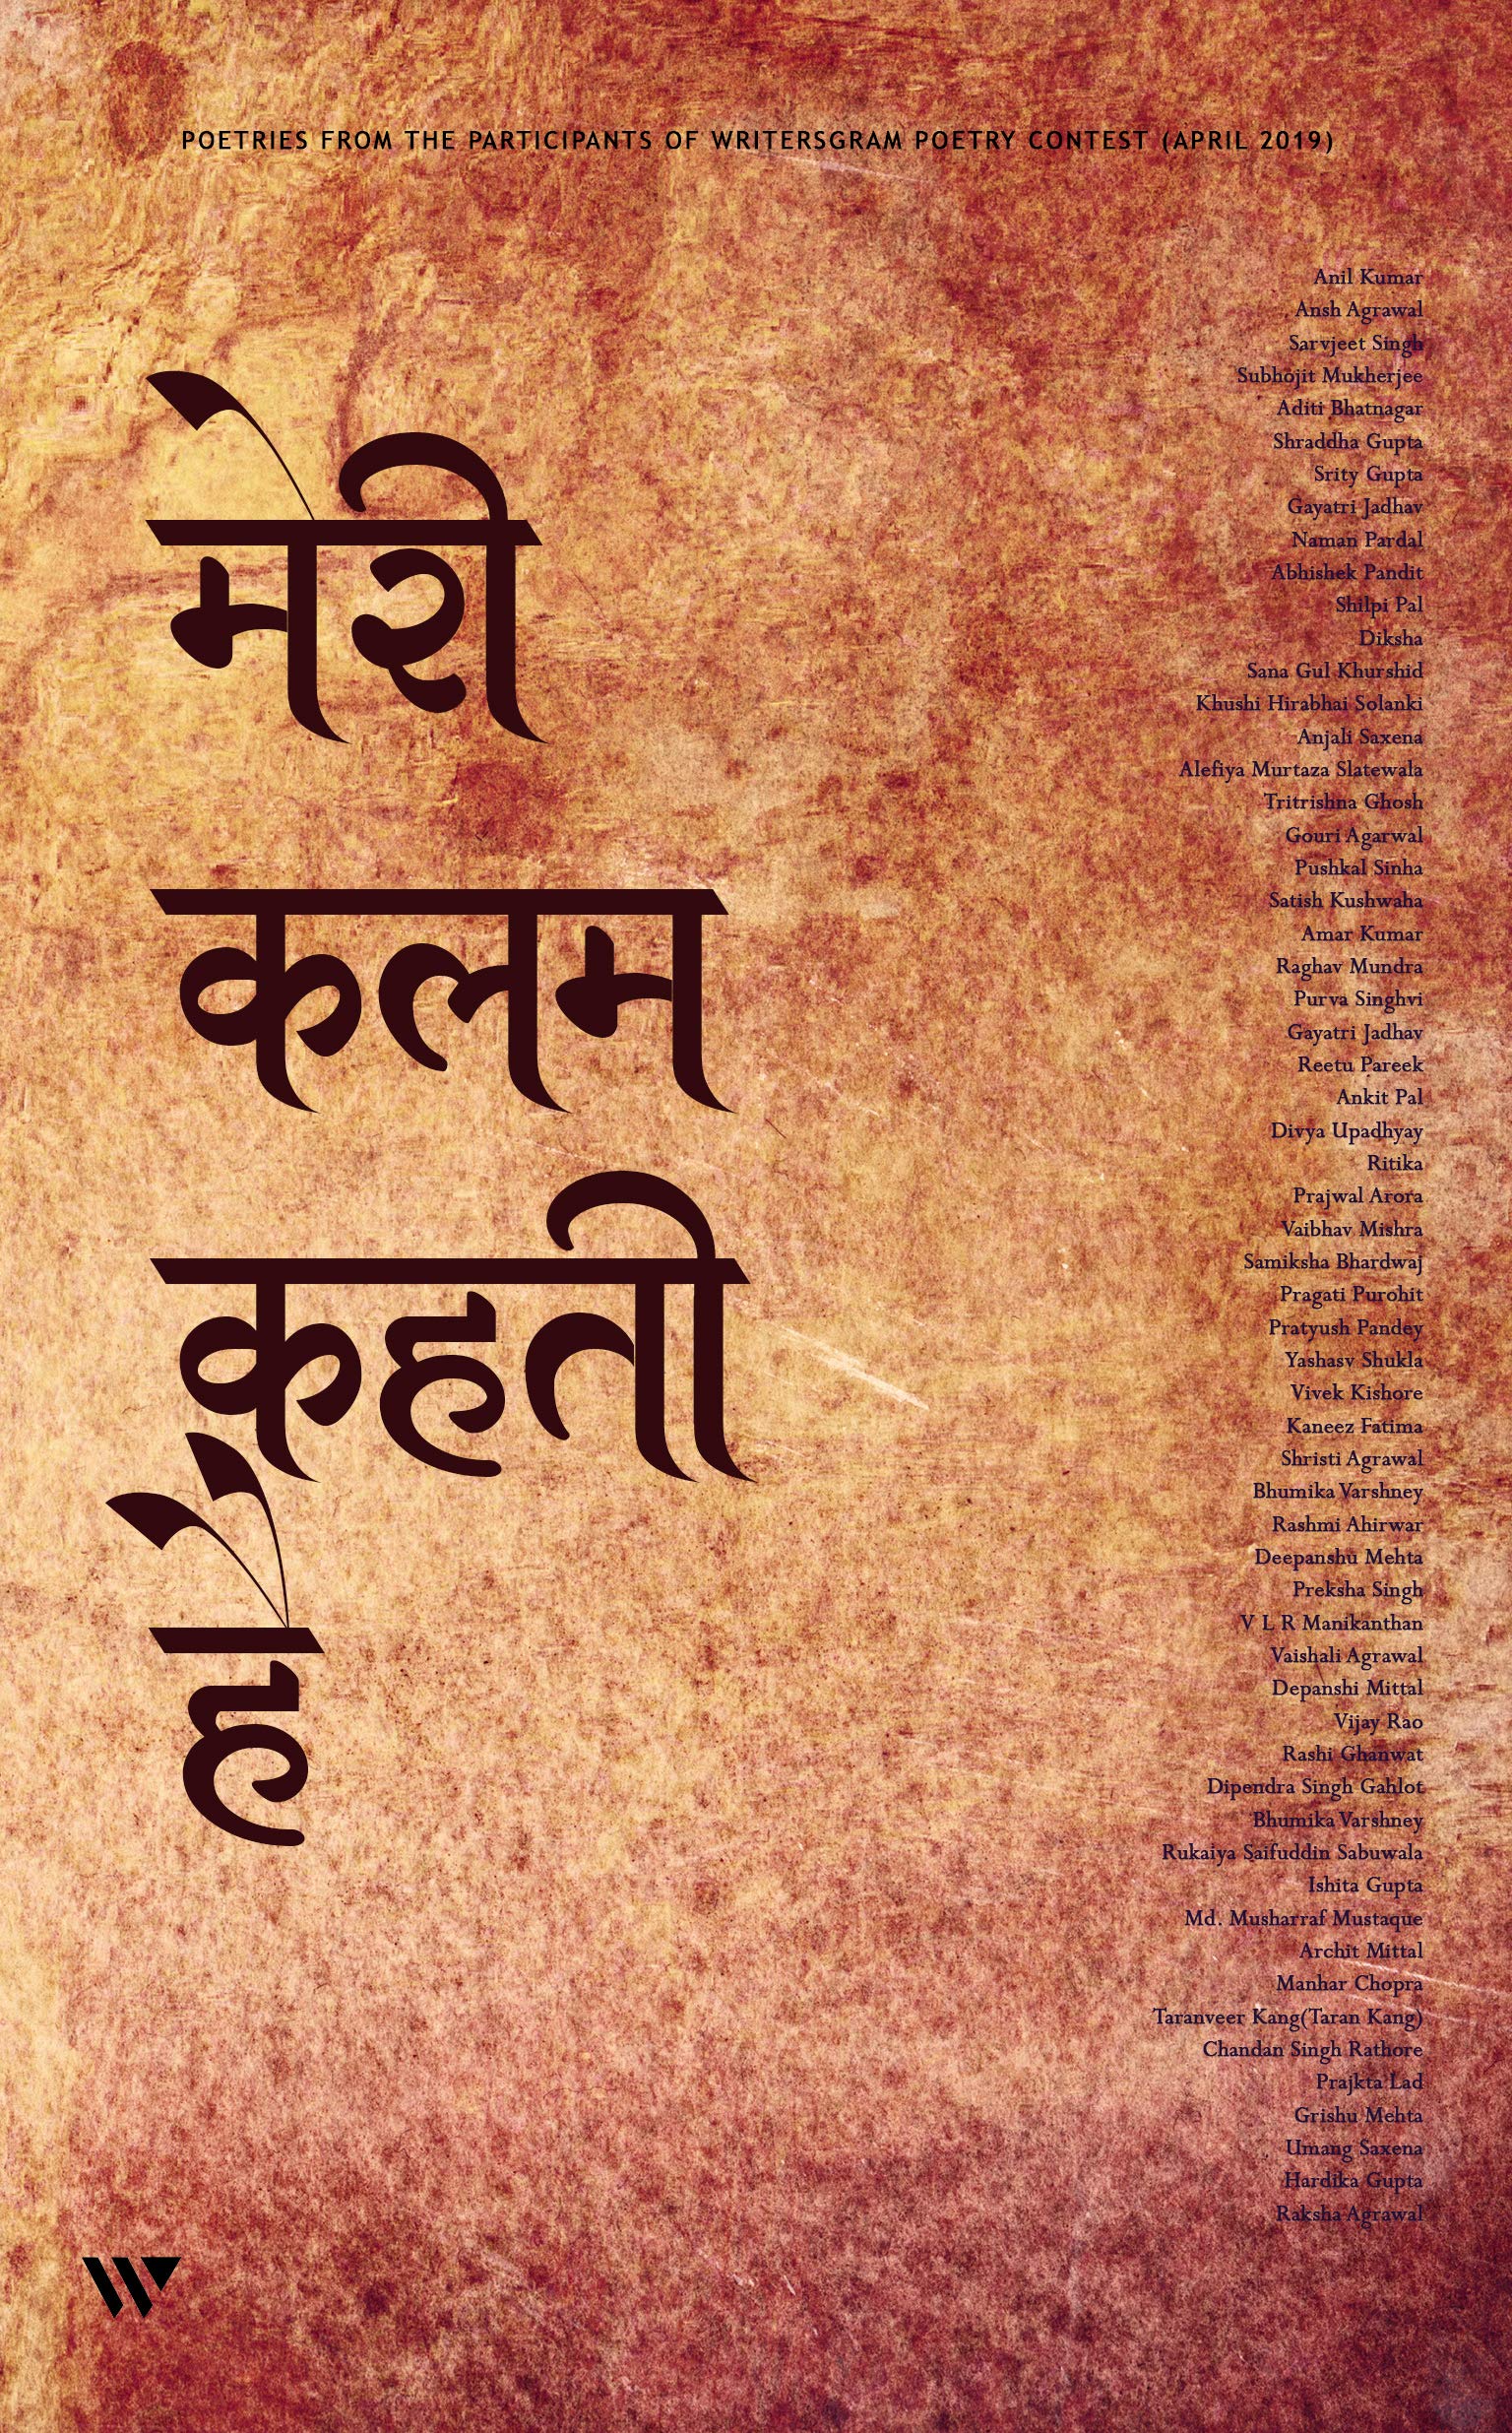 POETRIES FROM THE PARTICIPANTS OF WRITERSGRAM POETRY CONTEST (APRIL 2019)
मेरी
कलम
कहती
है
Anil Kumar
Ansh Agrawal
Sarvjeet Singh
Subhojit Mukherjee
Aditi Bhatnagar
Shraddha Gupta
Srity Gupta
Gayatri Jadhav
Naman Pardal
Abhishek Pandit
Shilpi Pal
Diksha
Sana Gul Khurshid
Khushi Hirabhai Solanki
Anjali Saxena
Alefiya Murtaza Slatewala
Tritrishna Ghosh
Gouri Agarwal
Pushkal Sinha
Satish Kushwaha
Amar Kumar
Raghav Mundra
Purva Singhvi
Gayatri Jadhav
Reetu Pareek
Ankit Pal
Divya Upadhyay
Ritika
Prajwal Arora
Vaibhav Mishra
Samiksha Bhardwaj
Pragati Purohit
Pratyush Pandey
Yashasv Shukla
Vivek Kishore
Kaneez Fatima
Shristi Agrawal
Bhumika Varshney
Rashmi Ahirwar
Deepanshu Mehta
Preksha Singh
V L R Manikanthan
Vaishali Agrawal
Depanshi Mittal
Vijay Rao
Rashi Ghanwat
Dipendra Singh Gahlot
Bhumika Varshney
Rukaiya Saifuddin Sabuwala
Ishita Gupta
Md. Musharraf Mustaque
Archit Mittal
Manhar Chopra
Taranveer Kang(Taran Kang)
Chandan Singh Rathore
Prajkta Lad
Grishu Mehta
Umang Saxena
Hardika Gupta
Raksha Agrawal